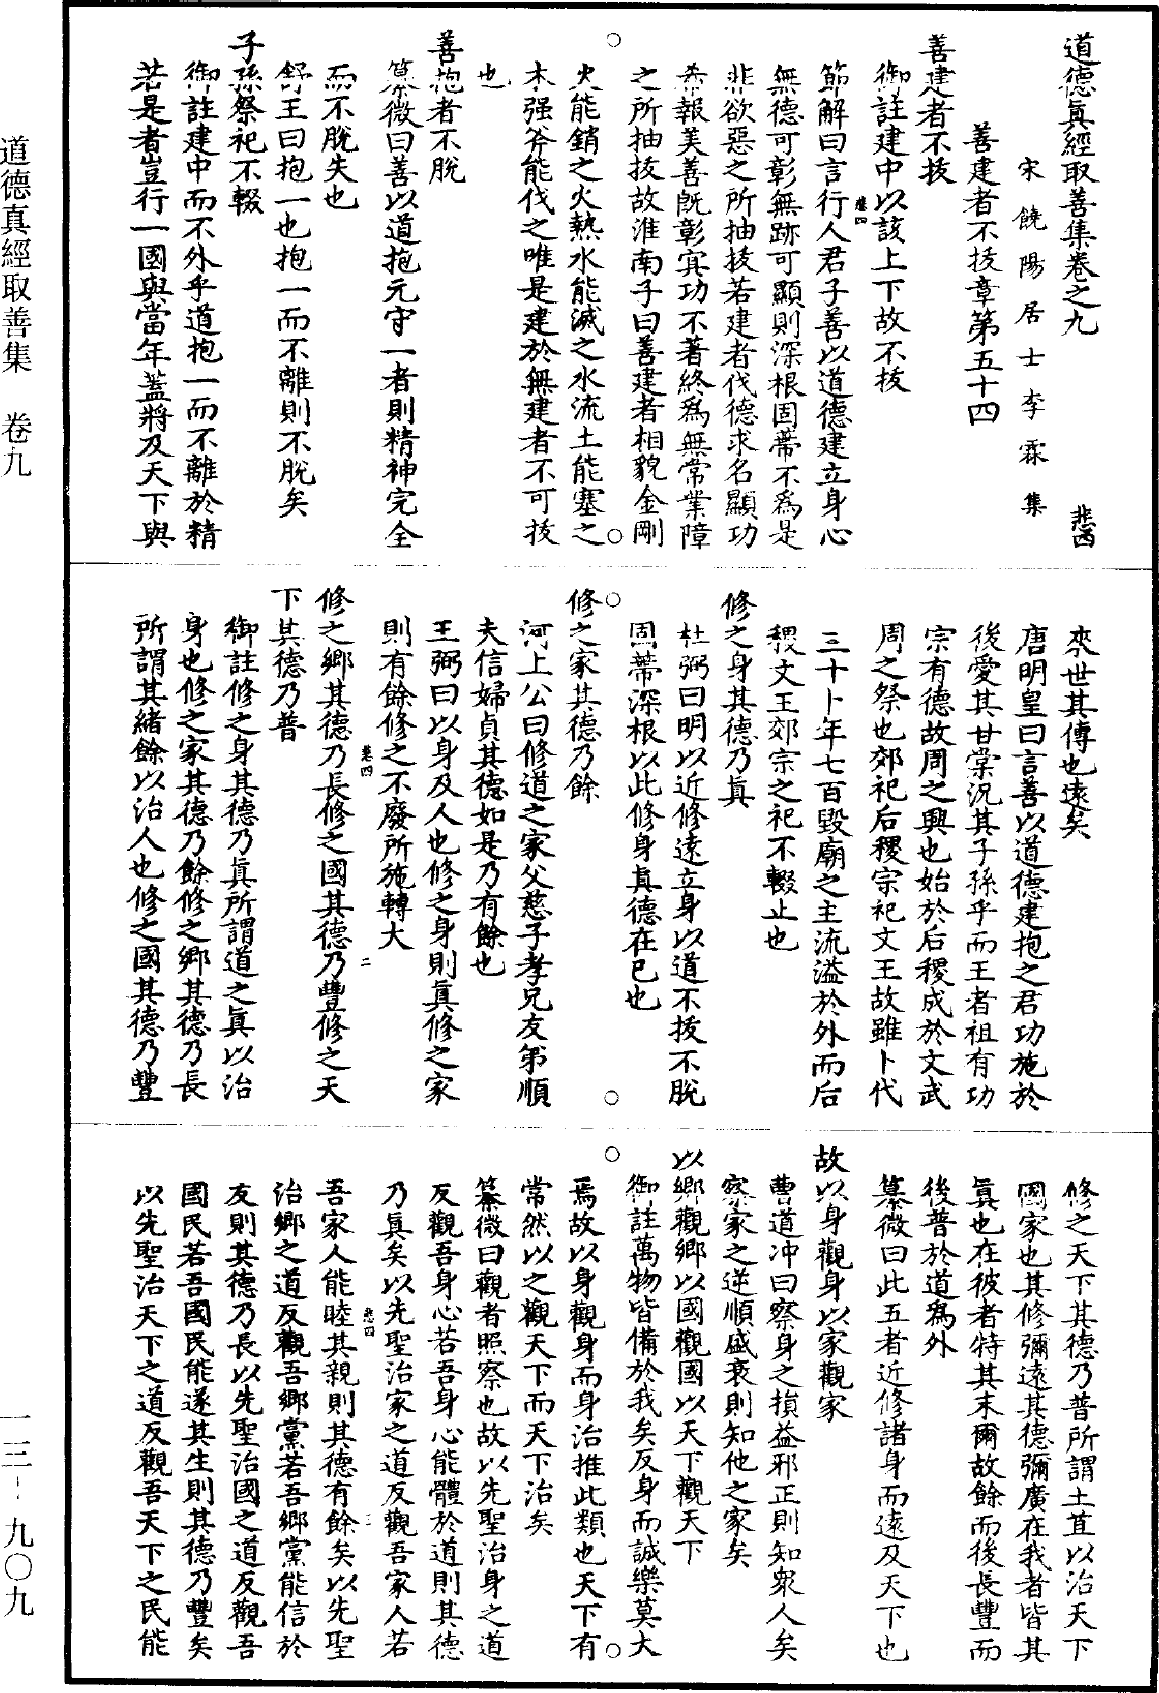 道德眞經取善集卷之九 悲四
宋饒陽居士李霖集
善建者不拔章第五十四
善建者不拔
御註建中以該上下故不拔
節解曰言行人君子善以道德建立身心
無德可彰無跡可顯則深根固蔕不爲是
非欲惡之所抽拔若建者伐德求名顯功
希報美善旣彰冥功不著終爲無常業障
之所抽拔故淮南子曰善建者相貌金剛
火能銷之火熱水能滅之水流土能塞之
木强斧能伐之唯是建於無建者不可拔
也
善抱者不脫
纂微曰善以道抱元守一者則精神完全
而不脫失也
舒王曰抱一也抱一而不離則不脫矣
子孫祭祀不輟
御註建中而不外乎道抱一而不離於精
若是者豈行一國與當年蓋將及天下與
來世其傳也遠矣
唐明皇曰言善以道德建抱之君功施於
後愛其甘棠況其子孫乎而王者祖有功
宗有德故周之興也始於后稷成於文武
周之祭也郊祀后稷宗祀文王故雖卜代
三十卜年七百毀廟之主流溢於外而后
稷文王郊宗之祀不輟止也
修之身其德乃眞
杜弼曰明以近修遠立身以道不拔不脫
固蔕深根以此修身眞德在已也
修之家其德乃餘
河上公曰修道之家父慈子孝兄友弟順
夫信婦貞其德如是乃有餘也
王弼曰以身及人也修之身則眞修之家
則有餘修之不廢所施轉大
修之鄉其德乃長修之國其德乃豐修之天
下其德乃普
御註修之身其德乃眞所謂道之眞以治
身也修之家其德乃餘修之鄉其德乃長
所謂其緒餘以治人也修之國其德乃豐
修之天下其德乃普所謂土苴以治天下
國家也其修彌遠其德彌廣在我者皆其
眞也在彼者特其末爾故餘而後長豐而
後普於道爲外
纂微曰此五者近修諸身而遠及天下也
故以身觀身以家觀家
曹道冲曰察身之損益邪正則知衆人矣
察家之逆順盛衰則知他之家矣
以鄉觀鄉以國觀國以天下觀天下
御註萬物皆備於我矣反身而誠樂莫大
焉故以身觀身而身治推此類也天下有
常然以之觀天下而天下治矣
纂微曰觀者照察也故以先聖治身之道
反觀吾身心若吾身心能體於道則其德
乃眞矣以先聖治家之道反觀吾家人若
吾家人能睦其親則其德有餘矣以先聖
治鄉之道反觀吾鄉黨若吾鄉黨能信於
友則其德乃長以先聖治國之道反觀吾
國民若吾國民能遂其生則其德乃豐矣
以先聖治天下之道反觀吾天下之民能
道德真經取善集 卷九
一三－九〇九